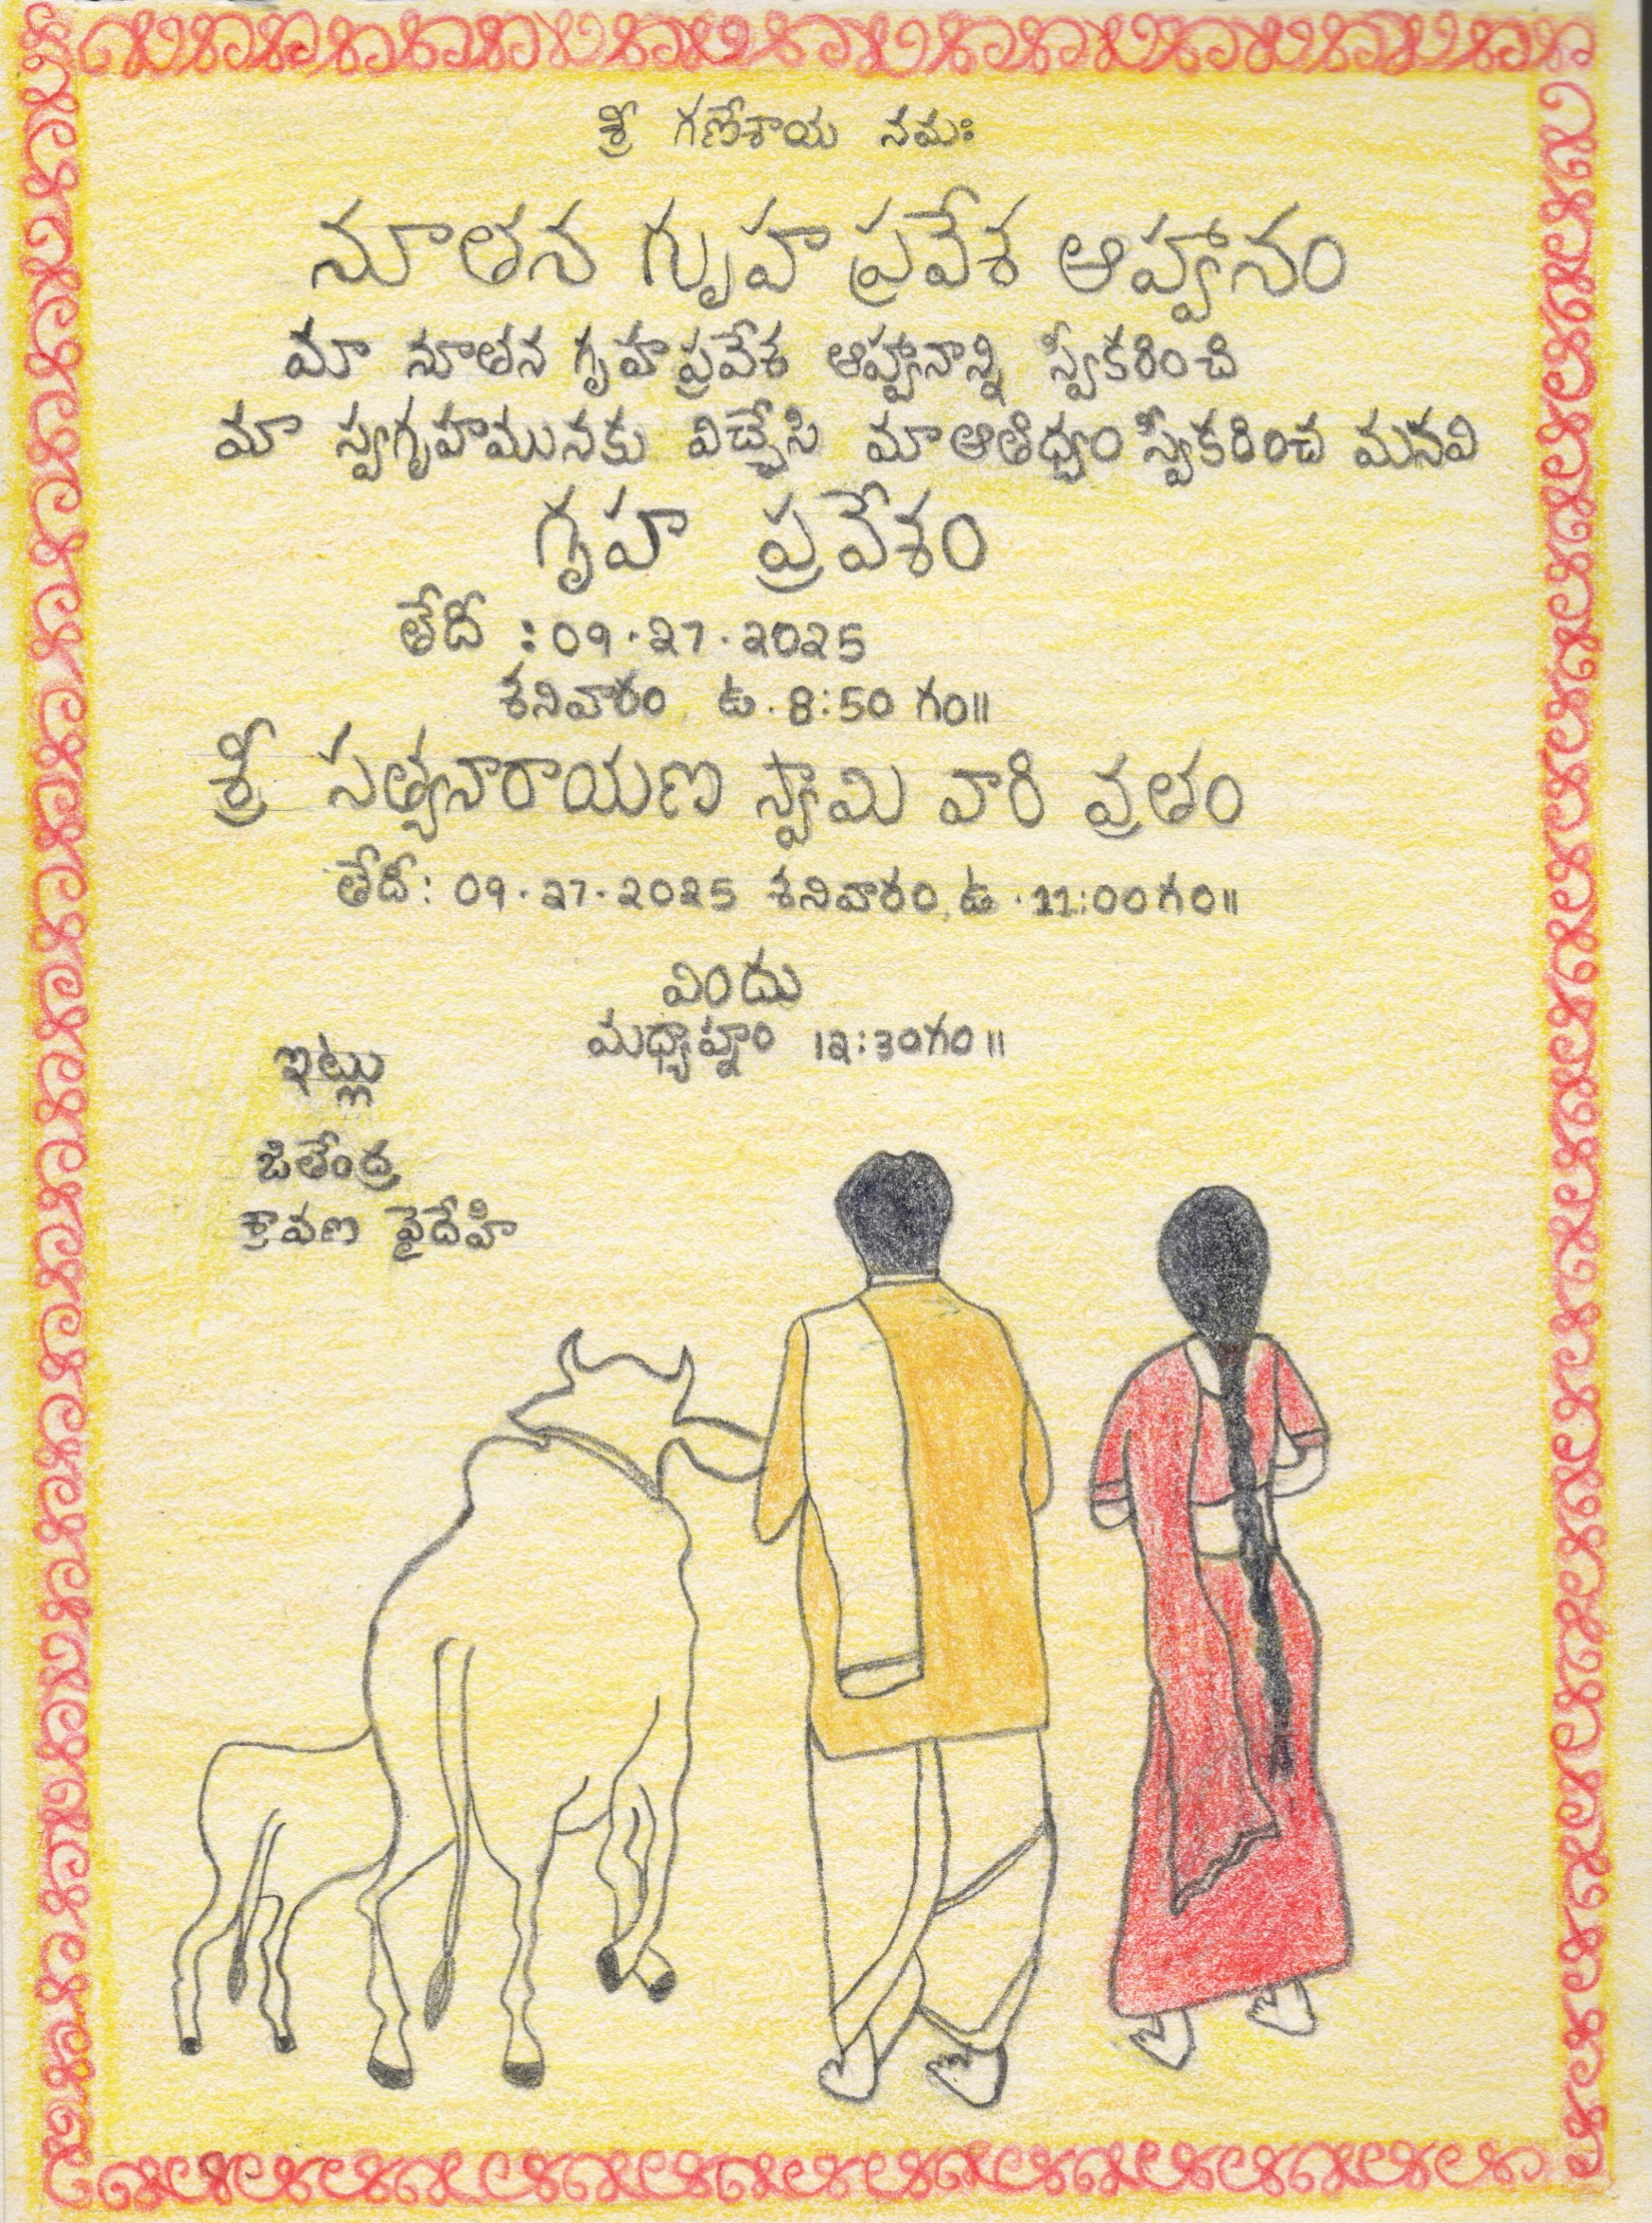 శ్రీ గణేశాయ నమః
నూతన గృహప్రవేశ ఆహ్వానం
మా నూతన గృహప్రవేశ ఆహ్వానాన్ని స్వీకరించి
మా స్వగృహమునకు విచ్చేసి మా ఆతిధ్యం స్వీకరించ మనవి
గృహ ప్రవేశం
తేదీ : 09.27.2025
శనివారం, ఉ. 8:50 గం॥
శ్రీ సత్యనారాయణ స్వామి వారి వ్రతం
తేదీ: 09.27.2025 శనివారం, ఉ. 11:00గం॥
విందు
మధ్యాహ్నం 12:30గం॥
ఇట్లు
జితేంద్ర
శ్రావణ వైదేహి